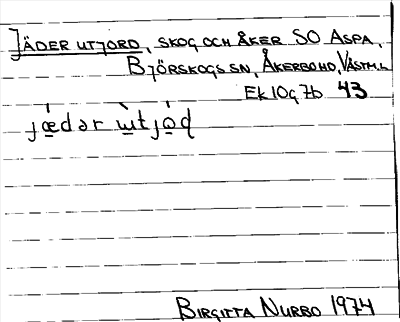 JÄDER UTJORD, SKOG OCH ÅKER SO ASPA,
BJÖRSKOGS SN, ÅKERBO HD, VÄSTM.L
EK 10g 7b 43
BIRGITTA NURBO 1974